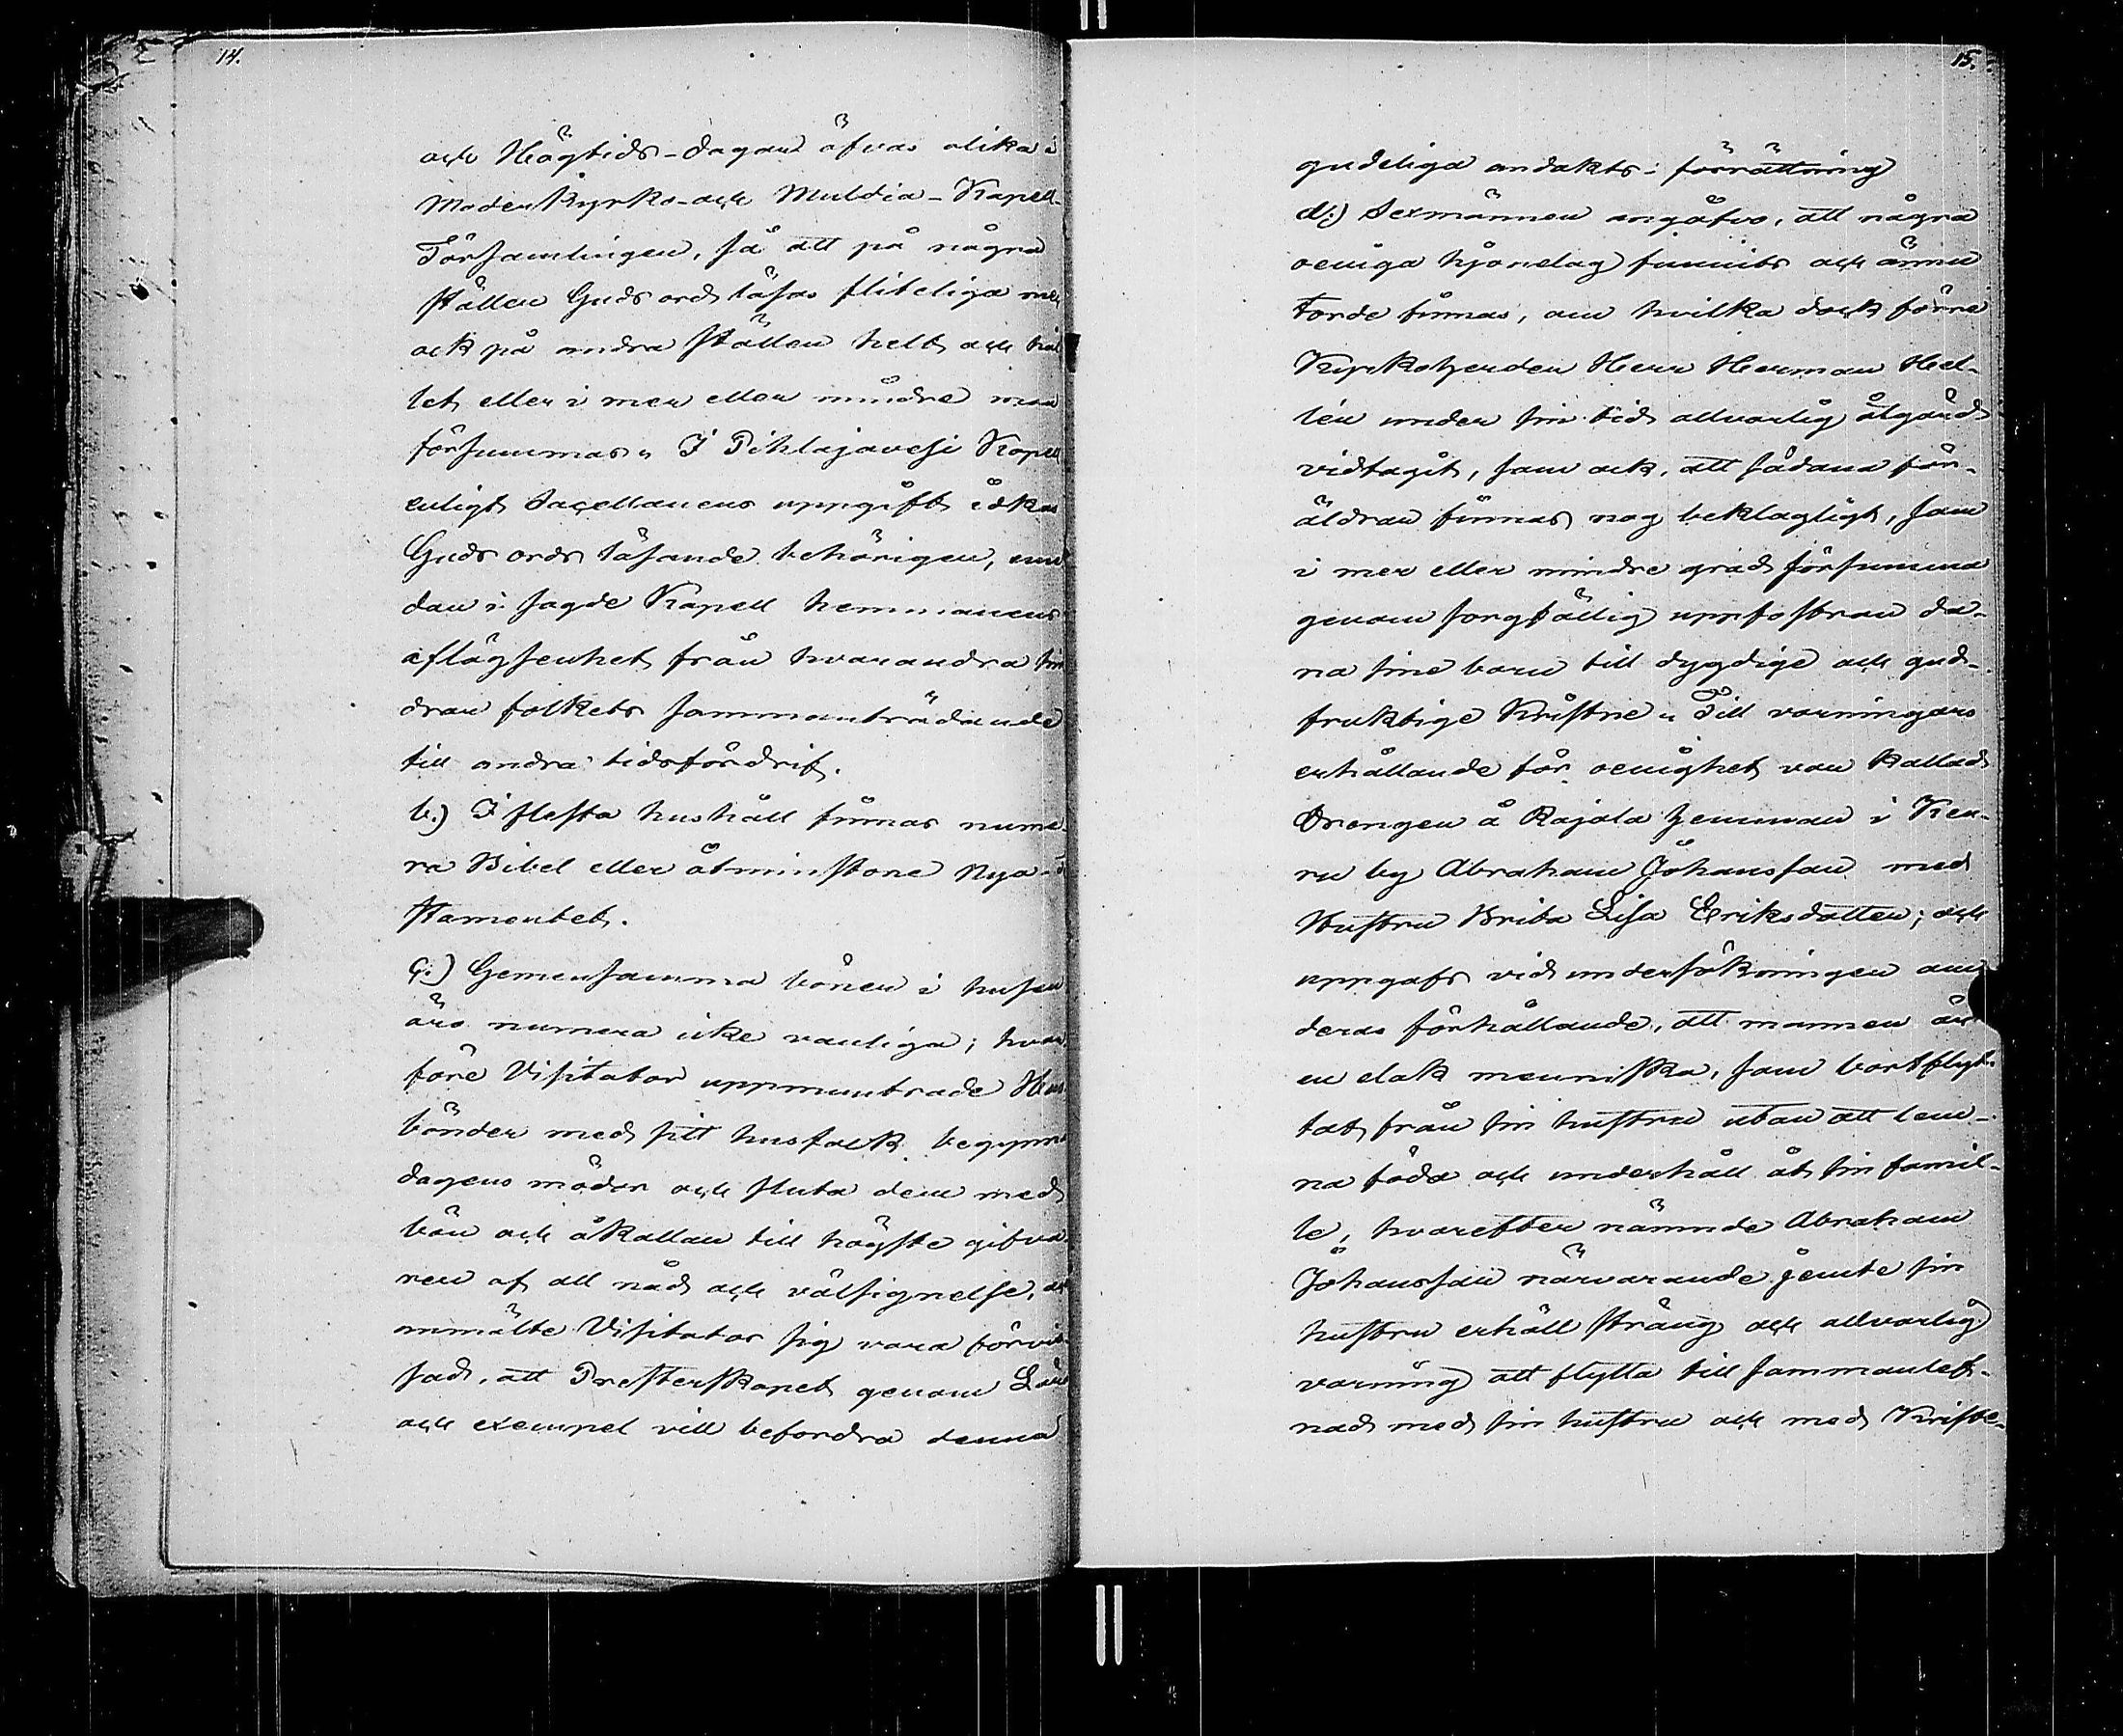 14.
och Högtids-dagar öfvas olika i
Moderkyrko- och Multia-Kapell-
Församlingen, så att på några
ställen Guds ord läsas fliteliga men
ock på andra ställen helt och hål
let eller i mer eller mindre mån
försummas. I Pihlajavesi Kapell
enligt Sacellanens uppgift idkas
Guds ords läsande behörigen, em
dan i sagde Kapell hemmanens
aflägsenhet från hvarandra hin
drar folkets sammanträdande
till andra tidsfördrif.
b.) I flesta hushåll finnas nume
ra Bibel eller åtminstone Nya
stamentet.
c.) Gemensamma böner i husen
äro numera icke vanliga; hvar
före Visitator uppmuntrade Hus
bönder med sitt husfolk begynna
dagens mödor och sluta dem med
bön och åkallan till högste gifva
ren af all nåd och välsignelse,
anmälte Visitator sig vara förvis
sad, att Presterskapet genom Lära
och exempel vill befordra denna
15.
gudeliga andakts-förrättning
d.) Sexmännen angåfvo, att några
oeniga hjonelag funnits och ännu
torde finnas, om hvilka dock förre
Kyrkoherden Herr Herman Hel-
lén under sin tid allvarlig åtgärd
vidtagit, som ock, att sådana för-
äldrar finnas nog beklagligt, som
i mer eller mindre grad försumma
genom sorgfällig uppfostran da-
na sine barn till dygdige och gud-
fruktige Kristne. Till varningars
erhållande för oenighet var kallad
Drengen å Rajala hemman i Keu-
ru by Abraham Johansson med
Hustru Brita Lisa Eriksdotter; och
uppgafs vid undersökningen om
deras förhållande, att mannen är
en elak menniska, som bortflyt-
tat från sin hustru utan att lem-
na föda och underhåll åt sin famil-
le, hvarefter nämnde Abraham
Johansson närvarande jemte sin
hustru erhöll sträng och allvarlig
varning att flytta till sammanlef-
nad med sin hustru och med Kriste-